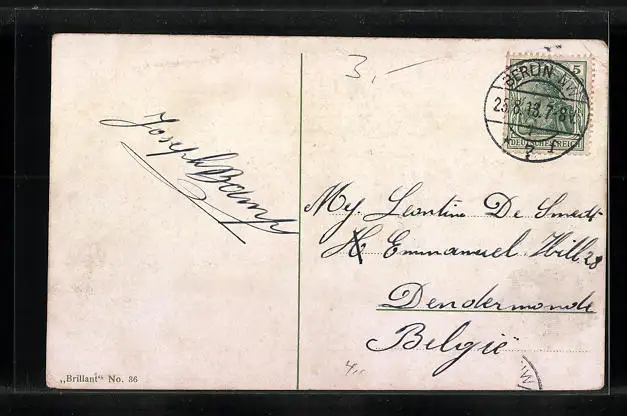 3,-
5
BERLIN
25.8.13.7-8V.
DEUTSCHES REICH
Joseph
My. Leontine De Smedt
Emmanuel Hill 28
Dendermonde
België
4,-
„Brillant“ No. 36